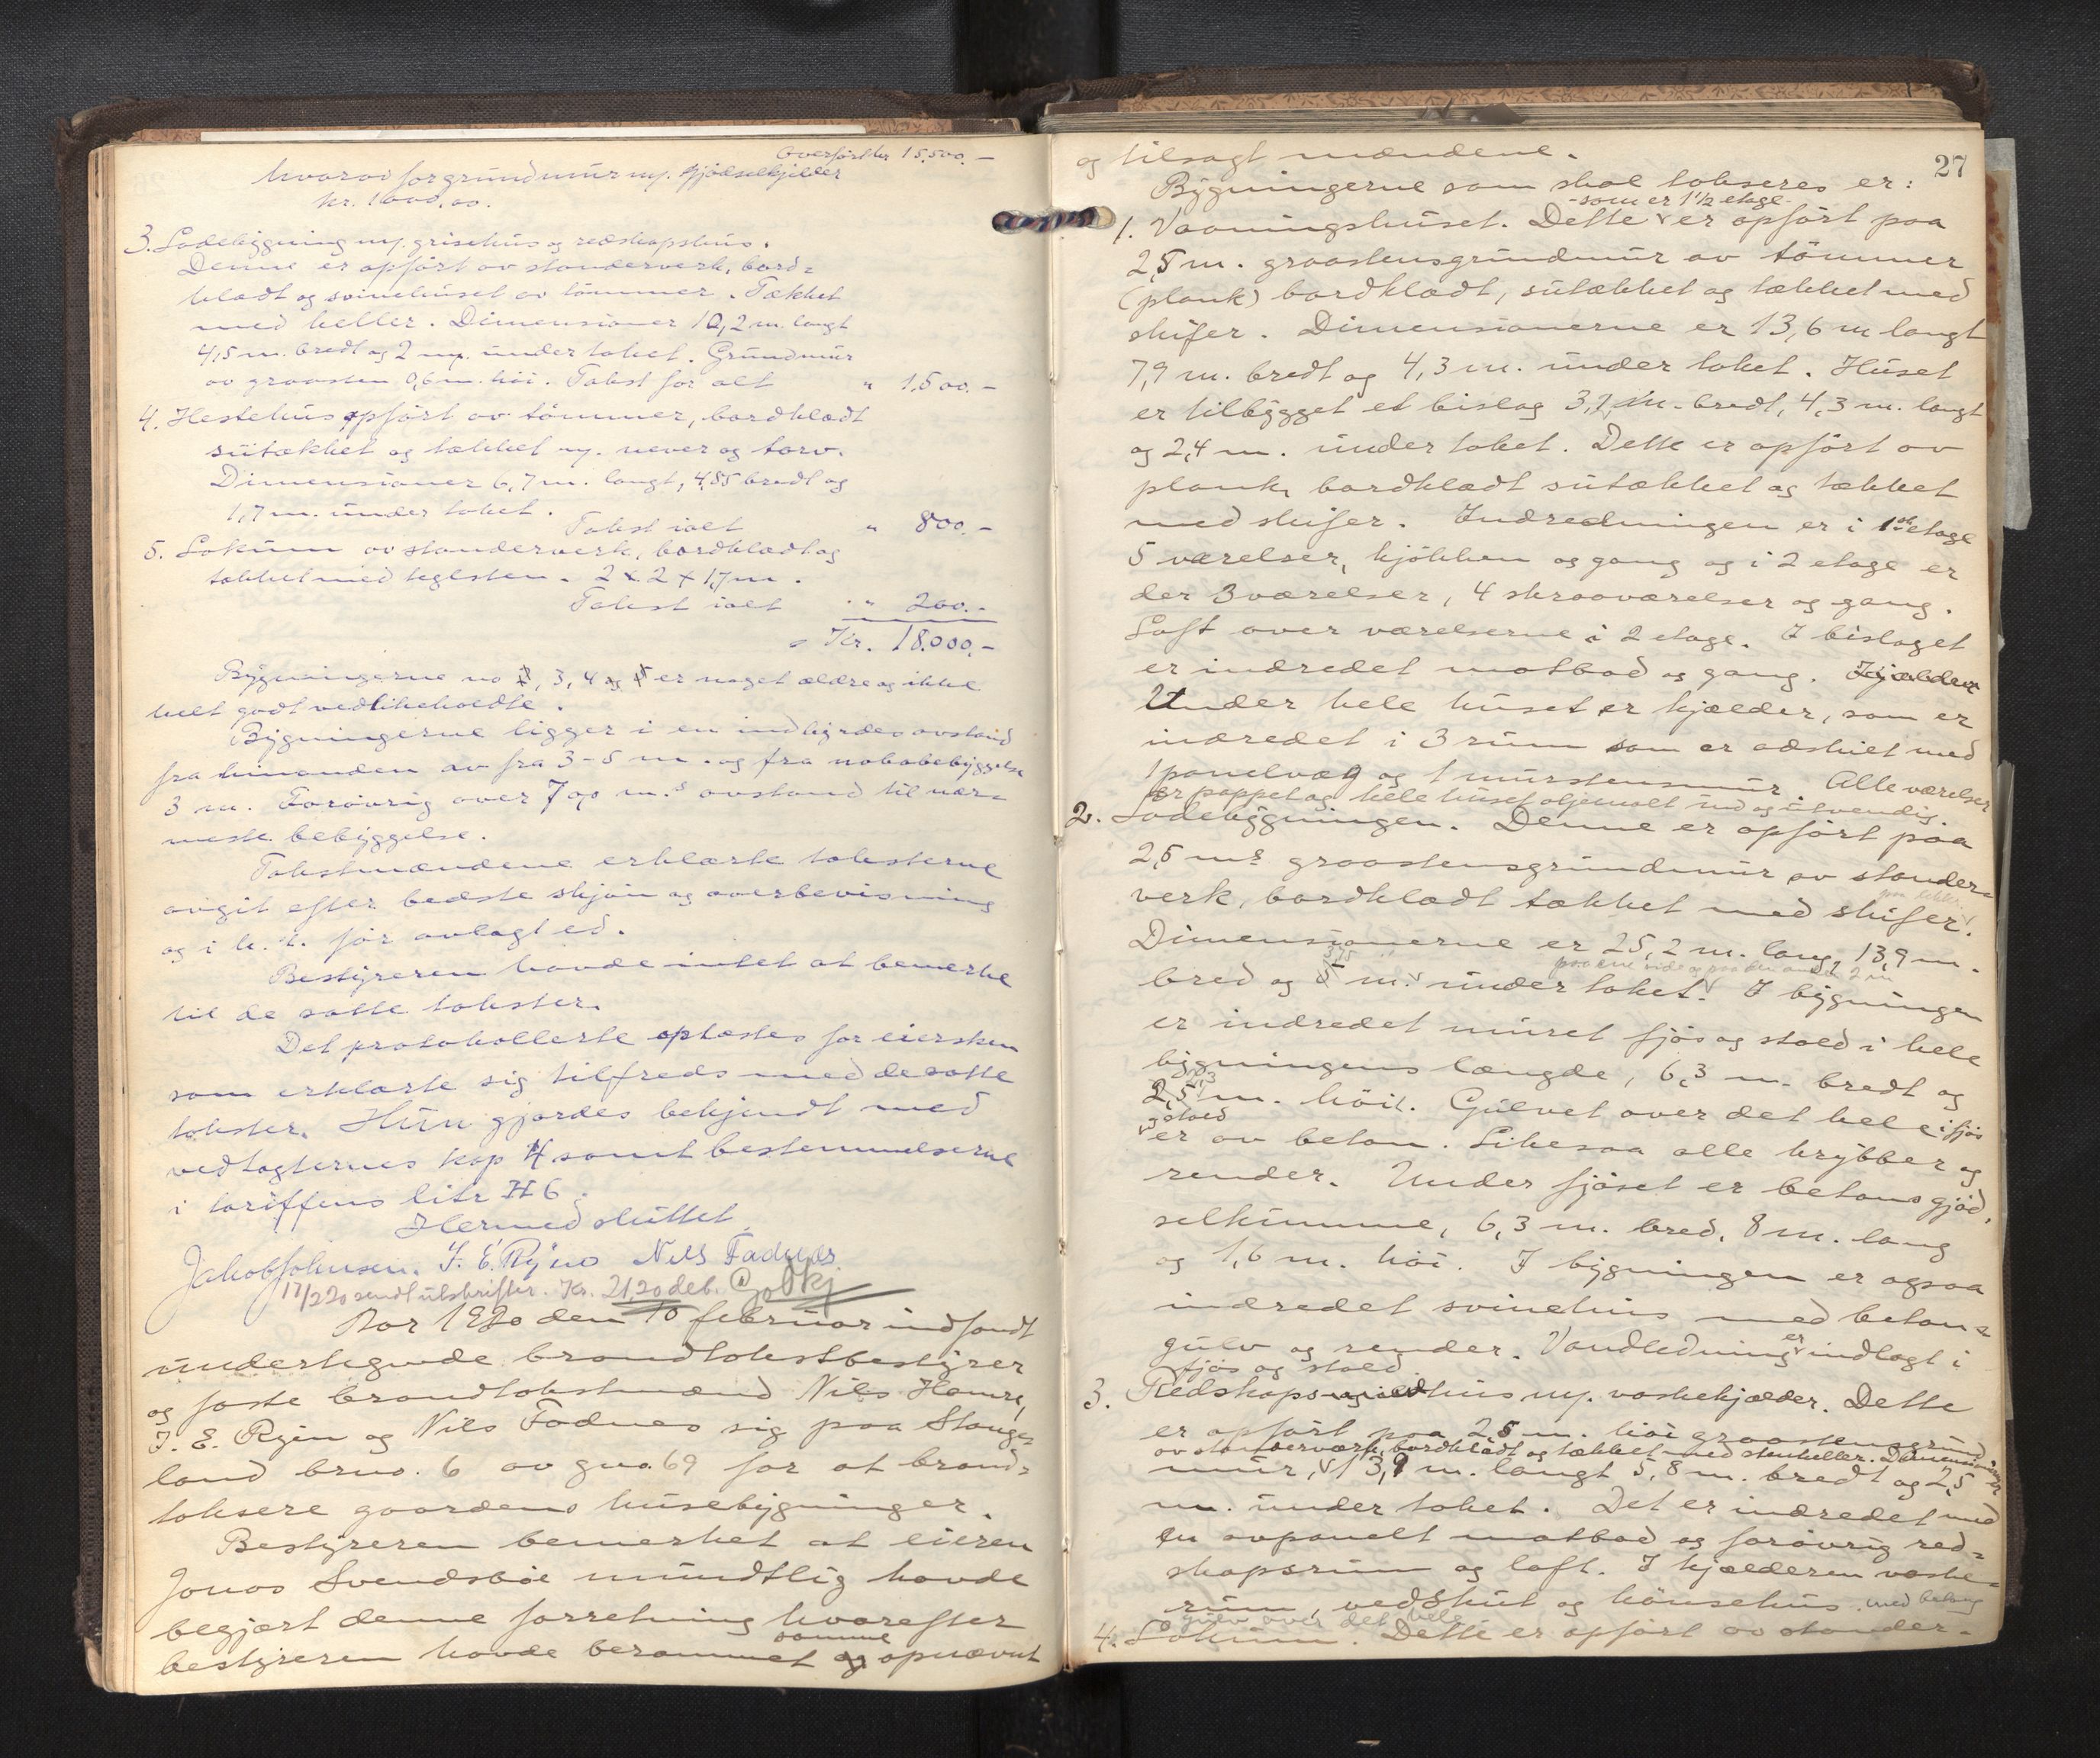 Overført kr 15.500.-
hvorav for grundmur m/. gjødselkjelder
kr. 1000,00.
3. Ladebygning m/. grisehus og redskapshus.
Denne er opført av standerverk, bord=
klædt og svinehuset av tømmer. Tækket
med heller. Dimensioner 10,2 m. langt
4,5 m. bredt og 2 m. under taket. Grundmur
av graasten 0,6 m. høi. Takst for alt " 1.500.-
4. Hestehus opført av tømmer, bordklædt
sutækket og tækket m/. never og torv.
Dimensioner 6,7 m. langt, 4,85 bredt og
1,7 m. under taket.
Takst ialt " 800.-
5. Lokum av standerverk, bordklædt og
tækket med teglsten. 2 x 2 x 1,7 m.
Takst ialt " 200.-
Kr. 18.000,-
Bygningerne no 3, 4 er noget ældre og ikke
helt godt vedlikeholdte.
Bygningerne ligger i en indbyrdes avstand
fra hinanden av fra 3-5 m. og fra nabobebyggelse
3 m. Forøvrig over 70 m.s avstand til nær=
meste bebyggelse.
Takstmændene erklærte taksterne
avgit efter bedste skjøn og overbevisning
og i h. t. før avlagt ed.
Bestyreren havde intet at bemerke
til de satte takster.
Det protokollerte oplæstes for eiersken
som erklærte sig tilfreds med de satte
takster. Hun gjordes bekjendt med
vedtægternes kap H samt bestemmelserne
i tariffens litr H 6.
Hermed sluttet.
Jakob Johnsen. I. E. Ryen Nils Fadnes
17/2 20 sendt utskrifter. Kr. 21,20 deb.
Aar 1920 den 10 februar indfandt
undertegnede brandtakstbestyrer
og faste brandtakstmænd Nils Hamre,
I. E. Ryen og Nils Fadnes sig paa Stanges=
land brno. 6 av gno. 69 for at brand=
taksere gaardens husebygninger.
Bestyreren bemerket at eieren
Jonas Svendsbøe mundtlig havde
begjært denne forretning hvorefter
bestyreren havde berammet samme og opnævnt
27
og tilsagt mændene.
Bygningerne som skal takseres er:
- som er 1 1/2 etage -
1. Vaaningshuset. Dette er opført paa
2,5 m. graastensgrundmur av tømmer
(plank) bordklædt, sutækket og tækket med
skifer. Dimensionerne er 13,6 m langt
7,9 m. bredt og 4,3 m. under taket. Huset
er tilbygget et bislag 3,7 m. bredt, 4,3 m. langt
og 2,4 m. under taket. Dette er opført av
plank, bordklædt sutækket og tækket
med skifer. Indredningen er i 1ste etage
5 værelser, kjøkken og gang og i 2 etage er
der 3 værelser, 4 skraaværelser og gang.
Loft over værelserne i 2 etage. I bislaget
er indredet matbod og gang. Kjælder
Under hele huset er kjælder, som er
indredet i 3 rum som er adskilt med
1 panelvæg og 1 murstensmur. Alle værelser
er pappet og hele huset oljemalt ind og utvendig.
2. Ladebygningen. Denne er opført paa
2,5 ms graastensgrundmur av stander=
verk, bordklædt tækket med skifer.
Dimensionerne er 25,2 m. lang, 13,9 m.
3,75 paa ene side og paa den anden 2 m
bred og 5 m. under taket. I bygningen
er indredet muret fjøs og stald i hele
bygningens længde, 6,3 m. bredt og
2,5 m. høit. Gulvet over det hele i fjøs
og stald
er av beton. Likesaa alle krybber og
render. Under fjøset er betons gjød=
selkumme, 6,3 m. bred, 8 m. lang
og 1,6 m. høi. I bygningen er ogsaa
indredet svinehus med beton=
gulv og render. Vandledning er indlagt i
fjøs og stald
3. Redskaps- og vedhus m/. vaskekjælder. Dette
er opført paa 2,5 m. høi graastensgrund
av standerværk, bordklædt og tækket med stenheller. Dimensioner
mur, 13,9 m. langt 5,8 m. bredt og 2,5
m. under taket. Det er indredet med
en avpanelt matbod og forøvrig red=
skapsrum og loft. I kjælderen vaske=
rum, vedskut og hønsehus. med betong
gulv over det hele
4. Lokum. Dette er opført av stander=